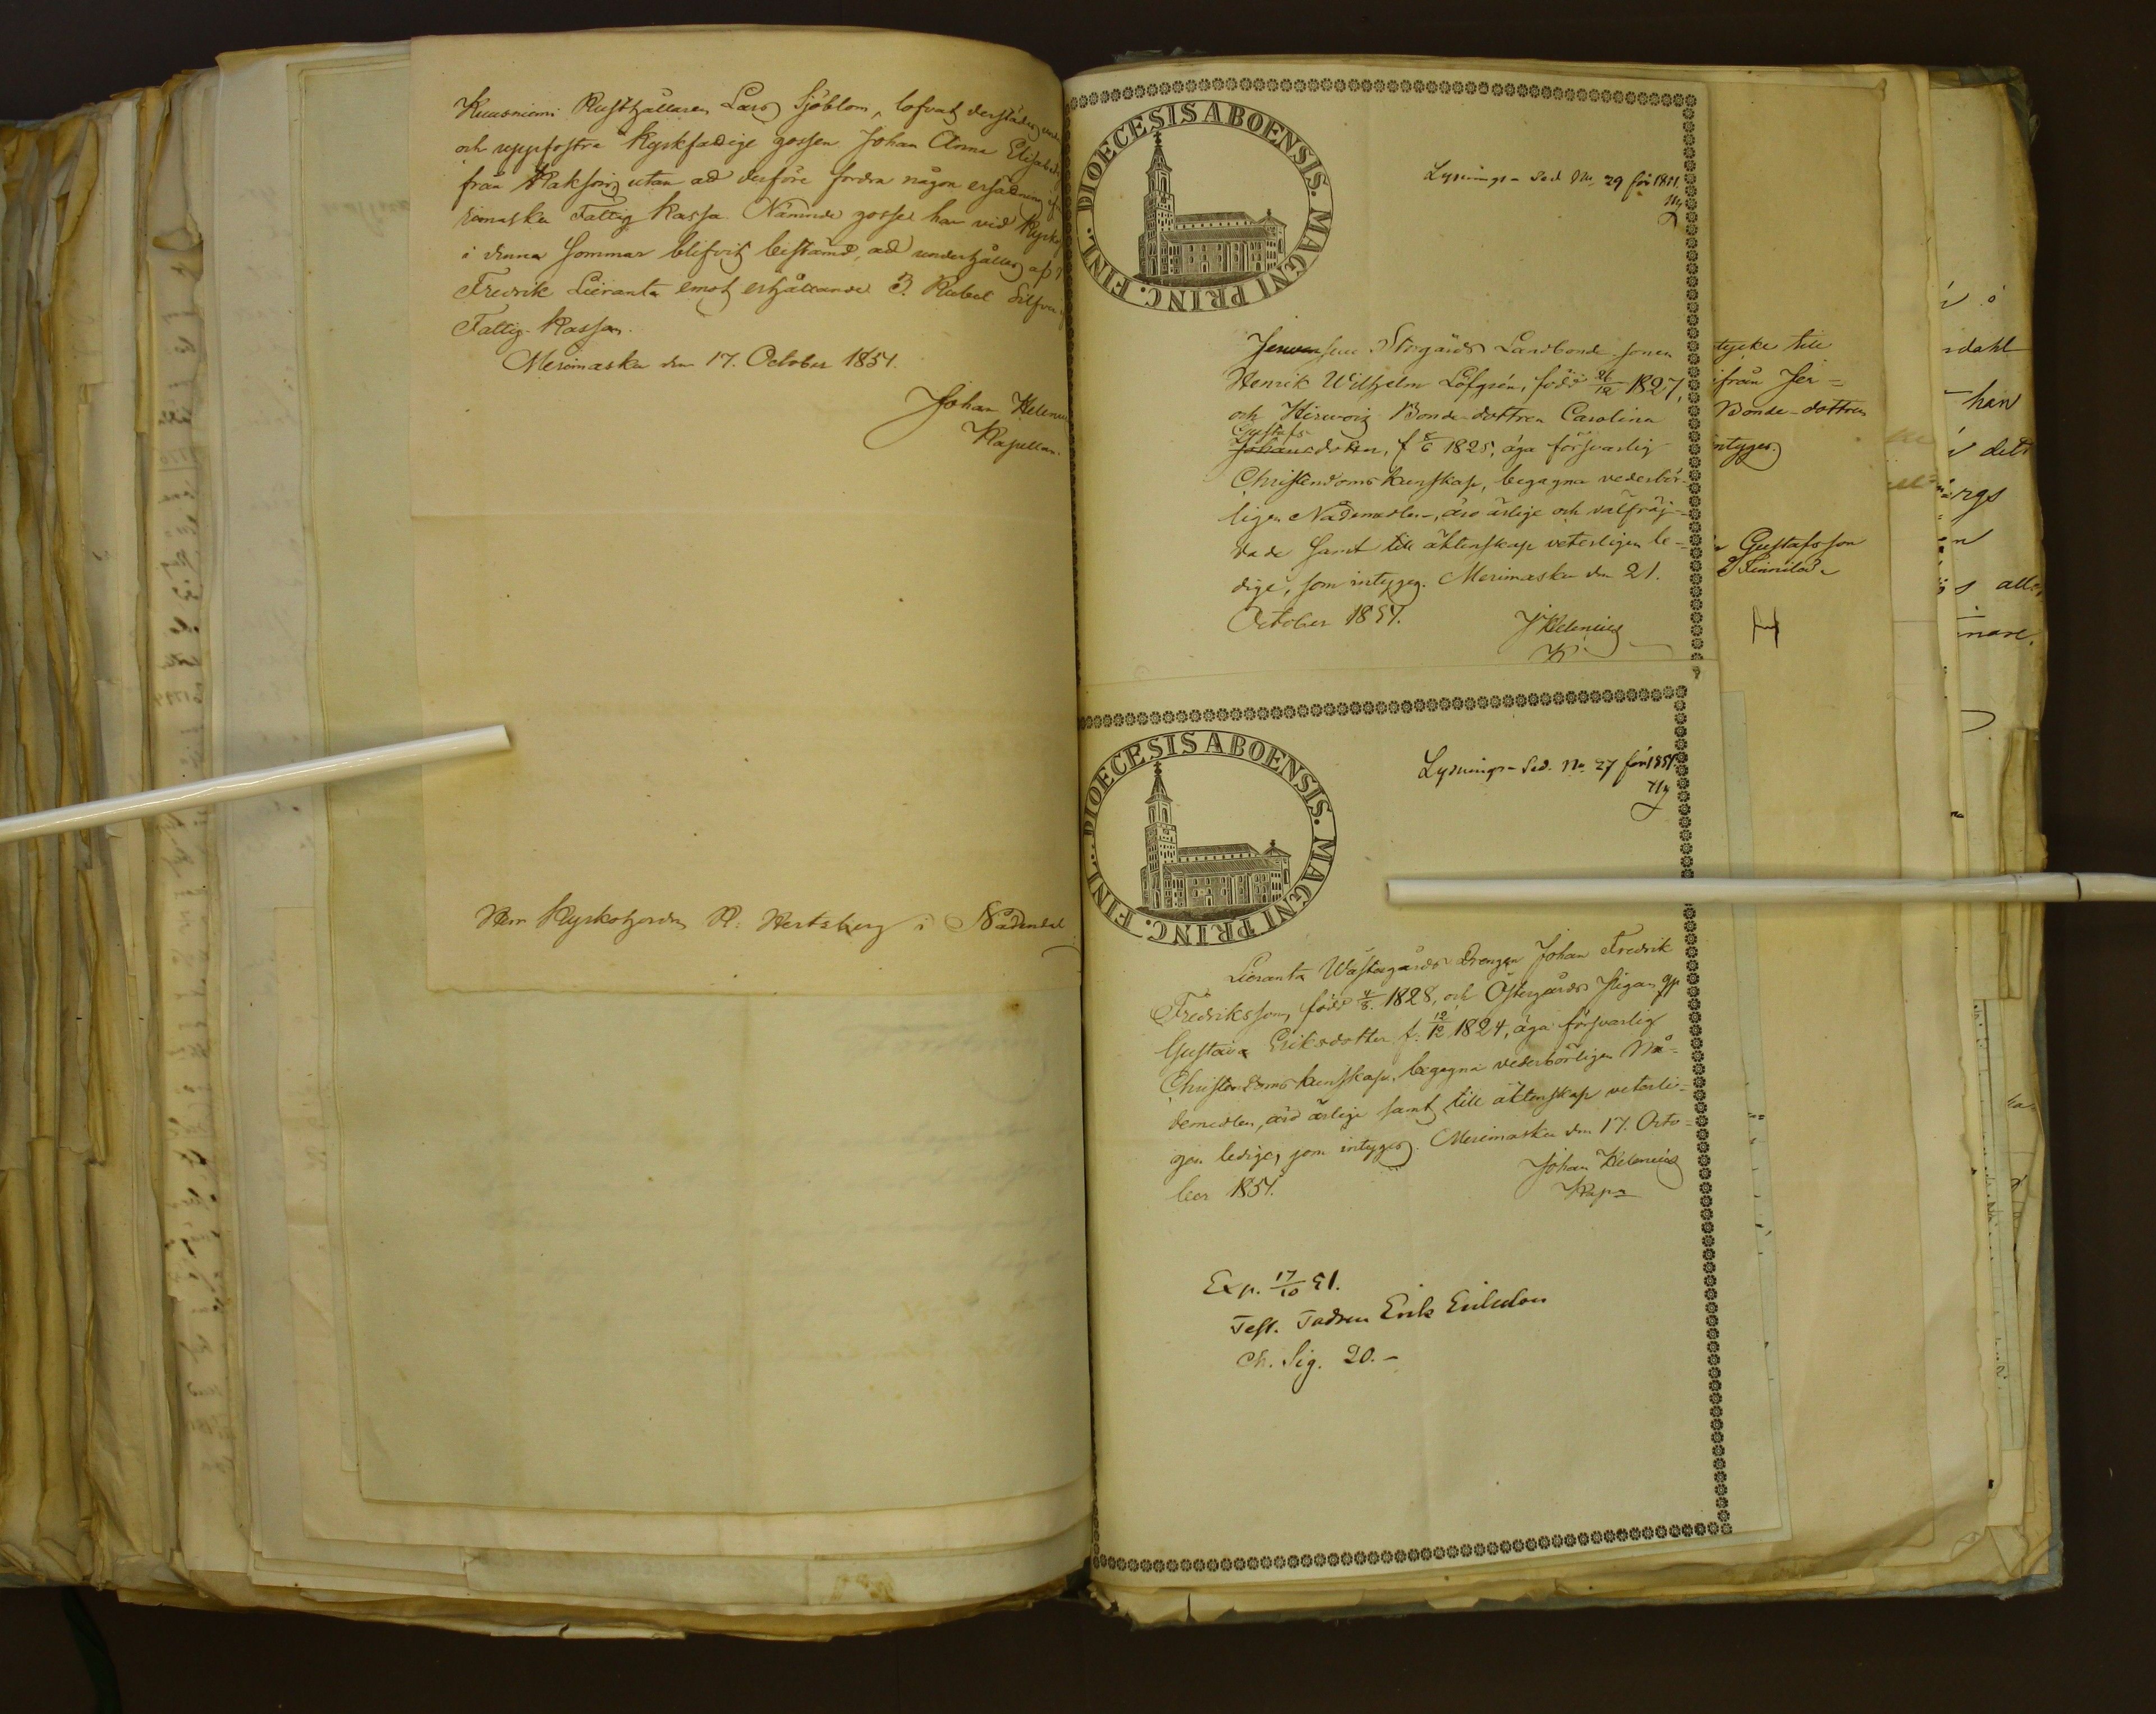 Kuusniemi Rusthållaren Lars Sjöblom, lofvat derstädes
och uppfostra Kyrkfadige gossen Johan Anna Elisabeth
från utan ad derföre fordra någon ersädning
rimasku Fattig Kassa. Nämnde gosse har vid Kyrko
i denna Sommar blifvit bestämd, ad underhållas af
Fredrik Lieranta emot erhållande 3. Rubel Silfver
Fattig-Kassan.
Merimasku den 17. October 1851.
Johan Helenius
Kapellan.
Herr Kyrkoherden R. Hertzberg i Nådendal
DIOECESIS ABOENSIS. MAGNI PRINC. FINL.
Lysnings-Sed No 29 för 1851.
Storgårds Landbonde-sonen
Henrik Wilhelm Löfgrén, född 21/12 1827,
och Hirwoix Bonde-dottren Carolina
Gustafs
Johansdotter, f 8/6 1825, äga försvarlig
Christendoms kunskap, begagna vederbör-
ligen Nådemedlen, äro ärlige och välfräj-
dade samt till äktenskap veterligen le-
dige, som intygas. Merimasku den 21.
October 1851.
J Helenius
K
tycke till
ifrån Jer=
Bonde-dottren
intygas
Gustafsson
DIOECESIS ABOENSIS. MAGNI PRINC. FINL.
Lysnings-Sed. No 27 för 1851.
Lieranta Wästergårds Drengen Johan Fredrik
Fredriksson, född 4/8. 1828, och Östergårds Pigan
Gustava Eriksdotter f. 12/12 1824, äga försvarlig
Christendoms kunskap, begagna vederbörligen Nå=
demedlen, äro ärlige samt till äktenskap veterli=
gen ledige, som intygas. Merimasku den 17. Octo=
ber 1851.
Johan Helenius
Kap
Exp. 17/10 51.
Test. Fadren Erik Eriksson
Ch. Sig. 20.-